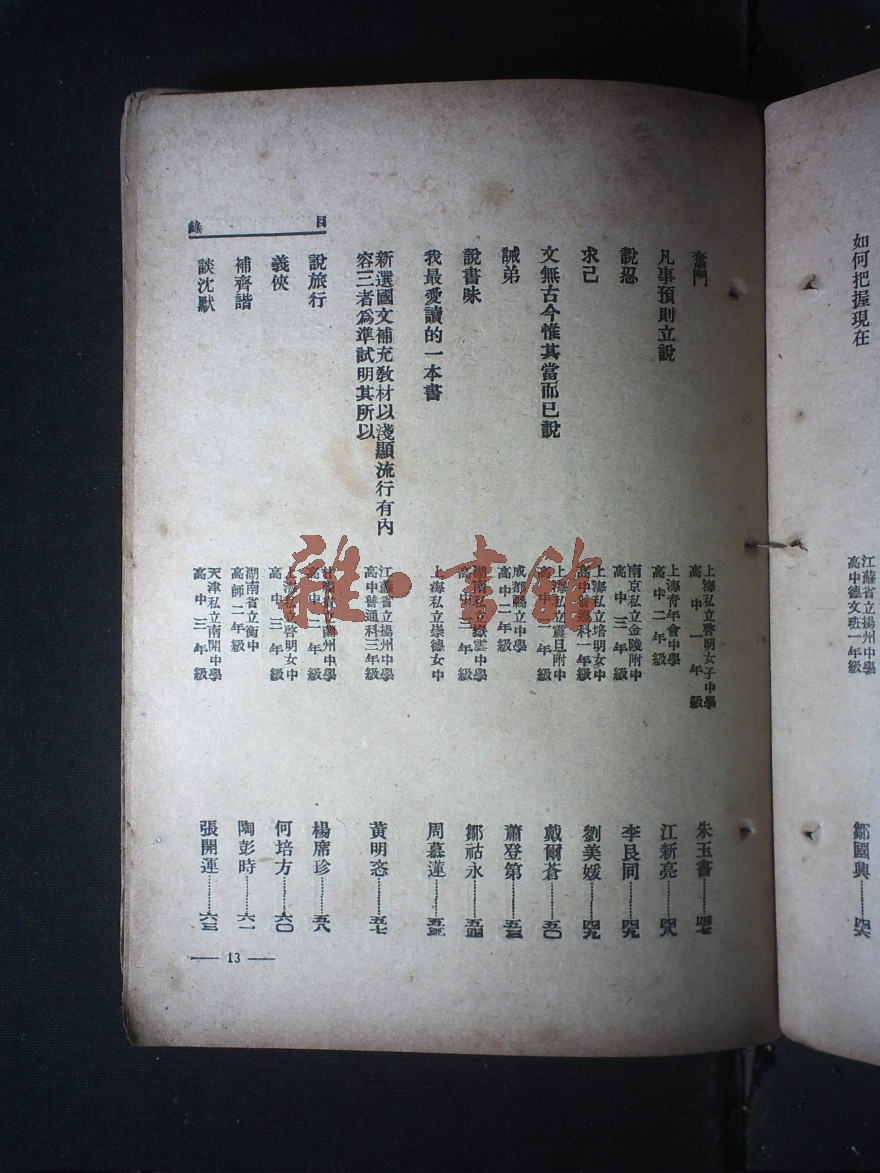 如何把握現在
江蘇省立揚州中學
高中德文班一年級
鄒國興
目錄
奮鬥
上海私立啓明女子中學
高中一年級
朱玉書……四七
凡事預則立說
上海青年會中學
高中二年級
江新亮……四八
說忍
南京私立金陵附中
高中三年級
李良同……四九
求己
上海私立培明女中
高中普通科一年級
劉美媛……四九
文無古今惟其當而已說
上海私立震旦附中
高中 年級
戴爾蒼……五〇
誡弟
成都縣立中學
高中二年級
蕭登第……五三
說書味
湖南私立嶽雲中學
高中三年級
鄒祜永……五四
我最愛讀的一本書
上海私立崇德女中
周慕蓮……五五
新選國文補充敎材以淺顯流行有內
容三者爲準試明其所以
江蘇省立揚州中學
高中普通科三年級
黃明
……五七
說旅行
州中學
高中二年級
楊席珍……五八
義俠
上海私立啓明女中
高中三年級
何培方……六〇
補齊諧
湖南省立衡中
高師二年級
陶彭時……六一
談沈默
天津私立南開中學
高中三年級
張開運……六三
— 13 —
雜·書館